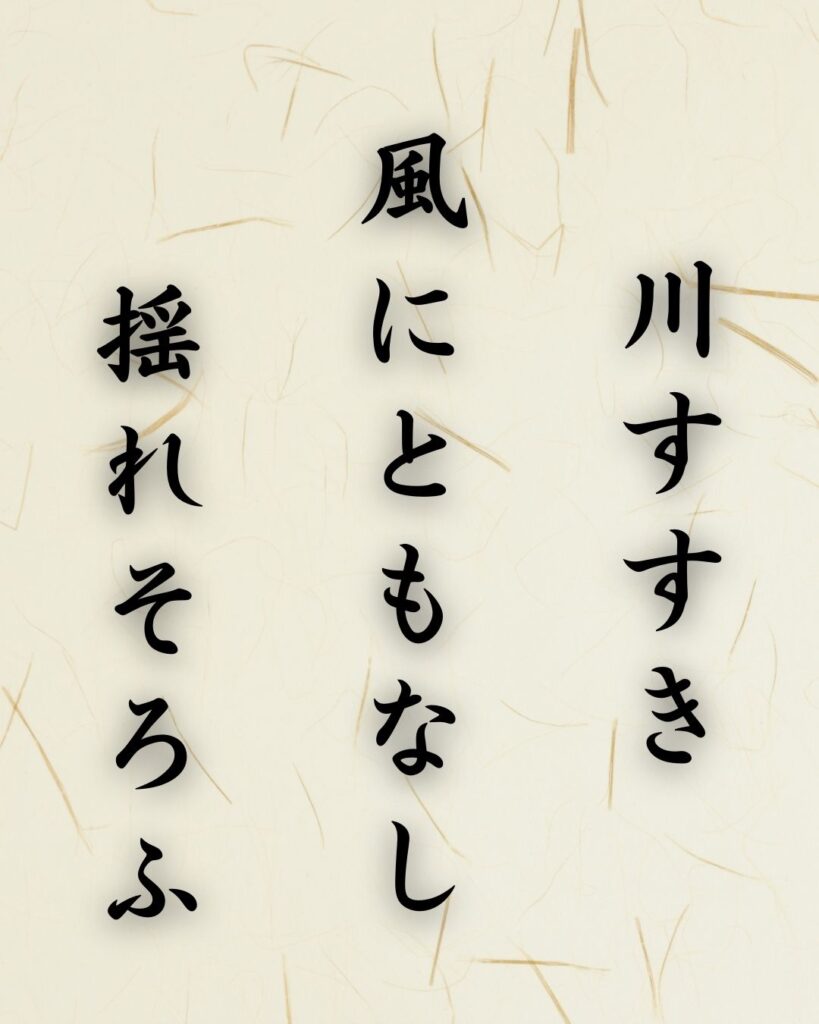 川すすき
風にともなし
揺れそろふ